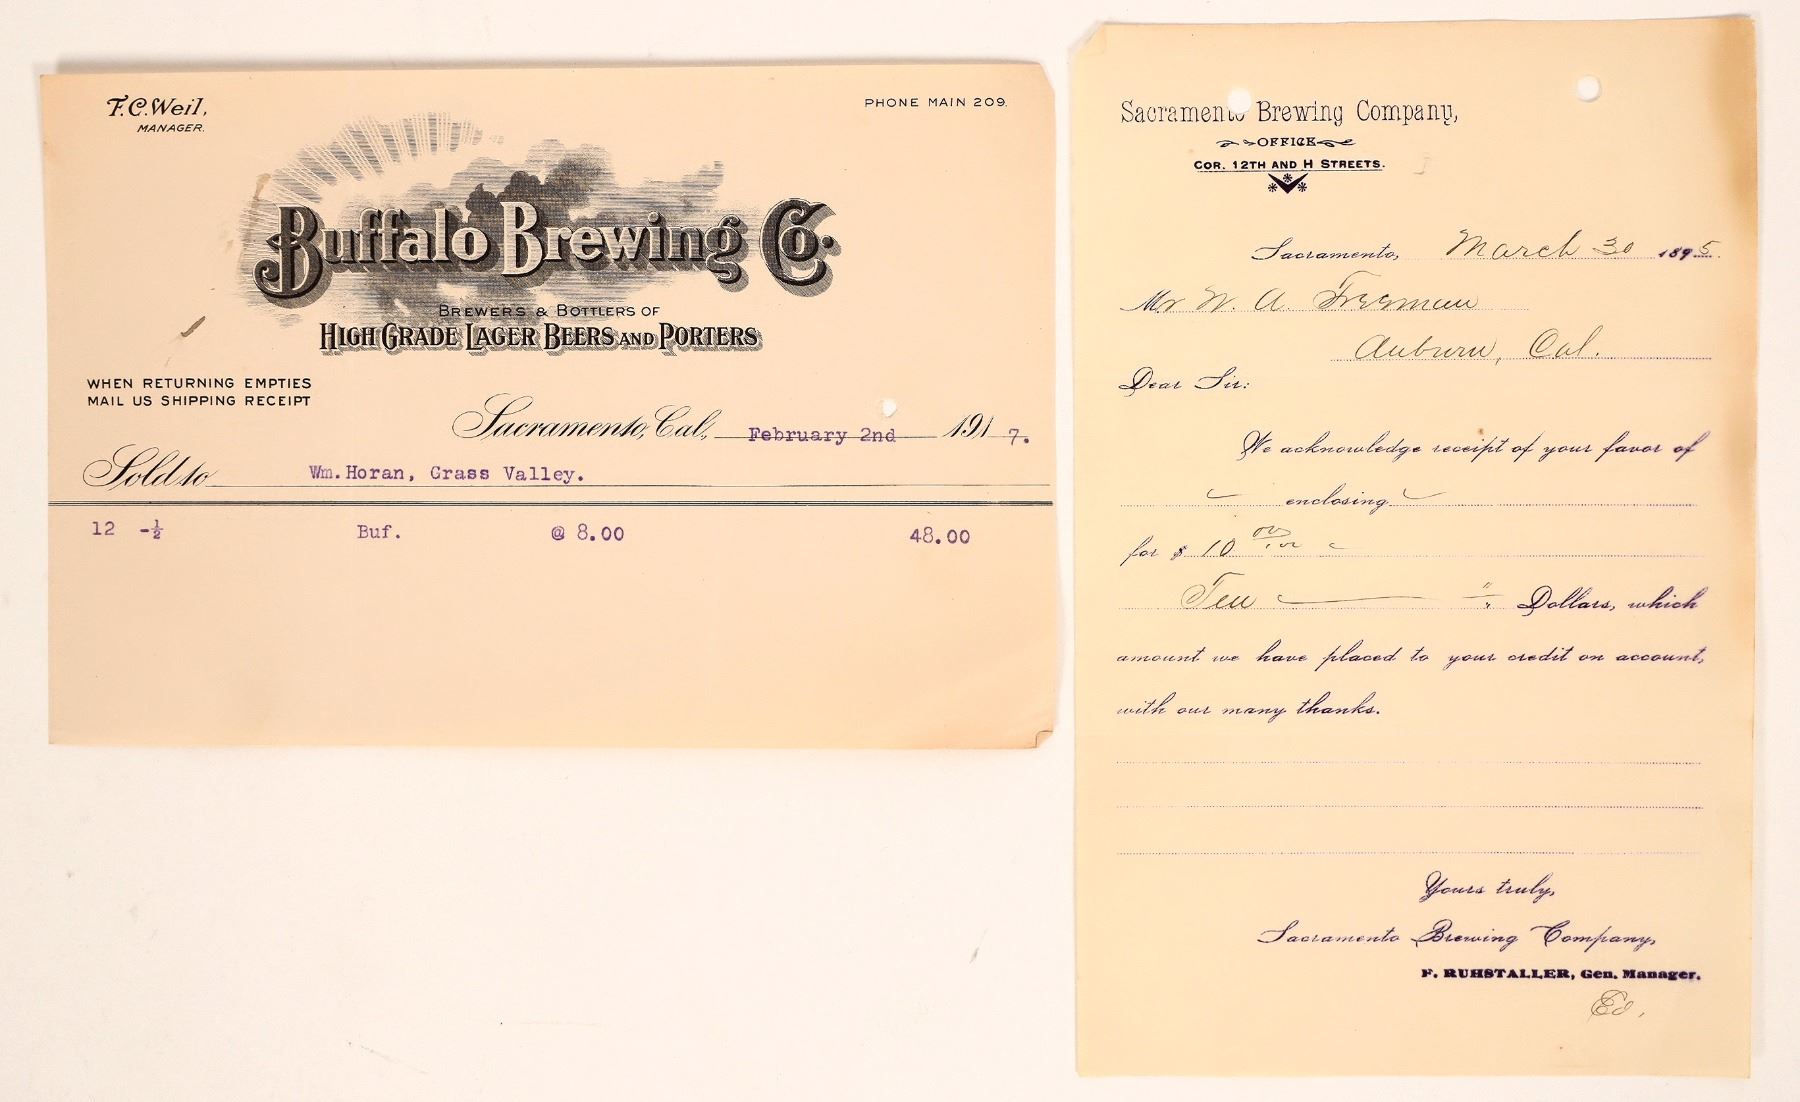 F.C. Weil,
MANAGER.
PHONE MAIN 209.
Buffalo Brewing Co.
BREWERS & BOTTLERS OF
HIGH GRADE LAGER BEERS AND PORTERS
WHEN RETURNING EMPTIES
MAIL US SHIPPING RECEIPT
Sacramento, Cal., February 2nd 1917.
Sold to Wm. Horan, Grass Valley.
12 -½ Buf. @ 8.00 48.00
Sacramento Brewing Company,
OFFICE
COR. 12TH AND H STREETS.
Sacramento, March 30 1895.
Mr W. A. Freeman
Auburn, Cal.
Dear Sir:
We acknowledge receipt of your favor of
enclosing
for $ 10
Ten Dollars, which
amount we have placed to your credit on account,
with our many thanks.
Yours truly,
Sacramento Brewing Company,
F. RUHSTALLER, Gen. Manager.
Ed.